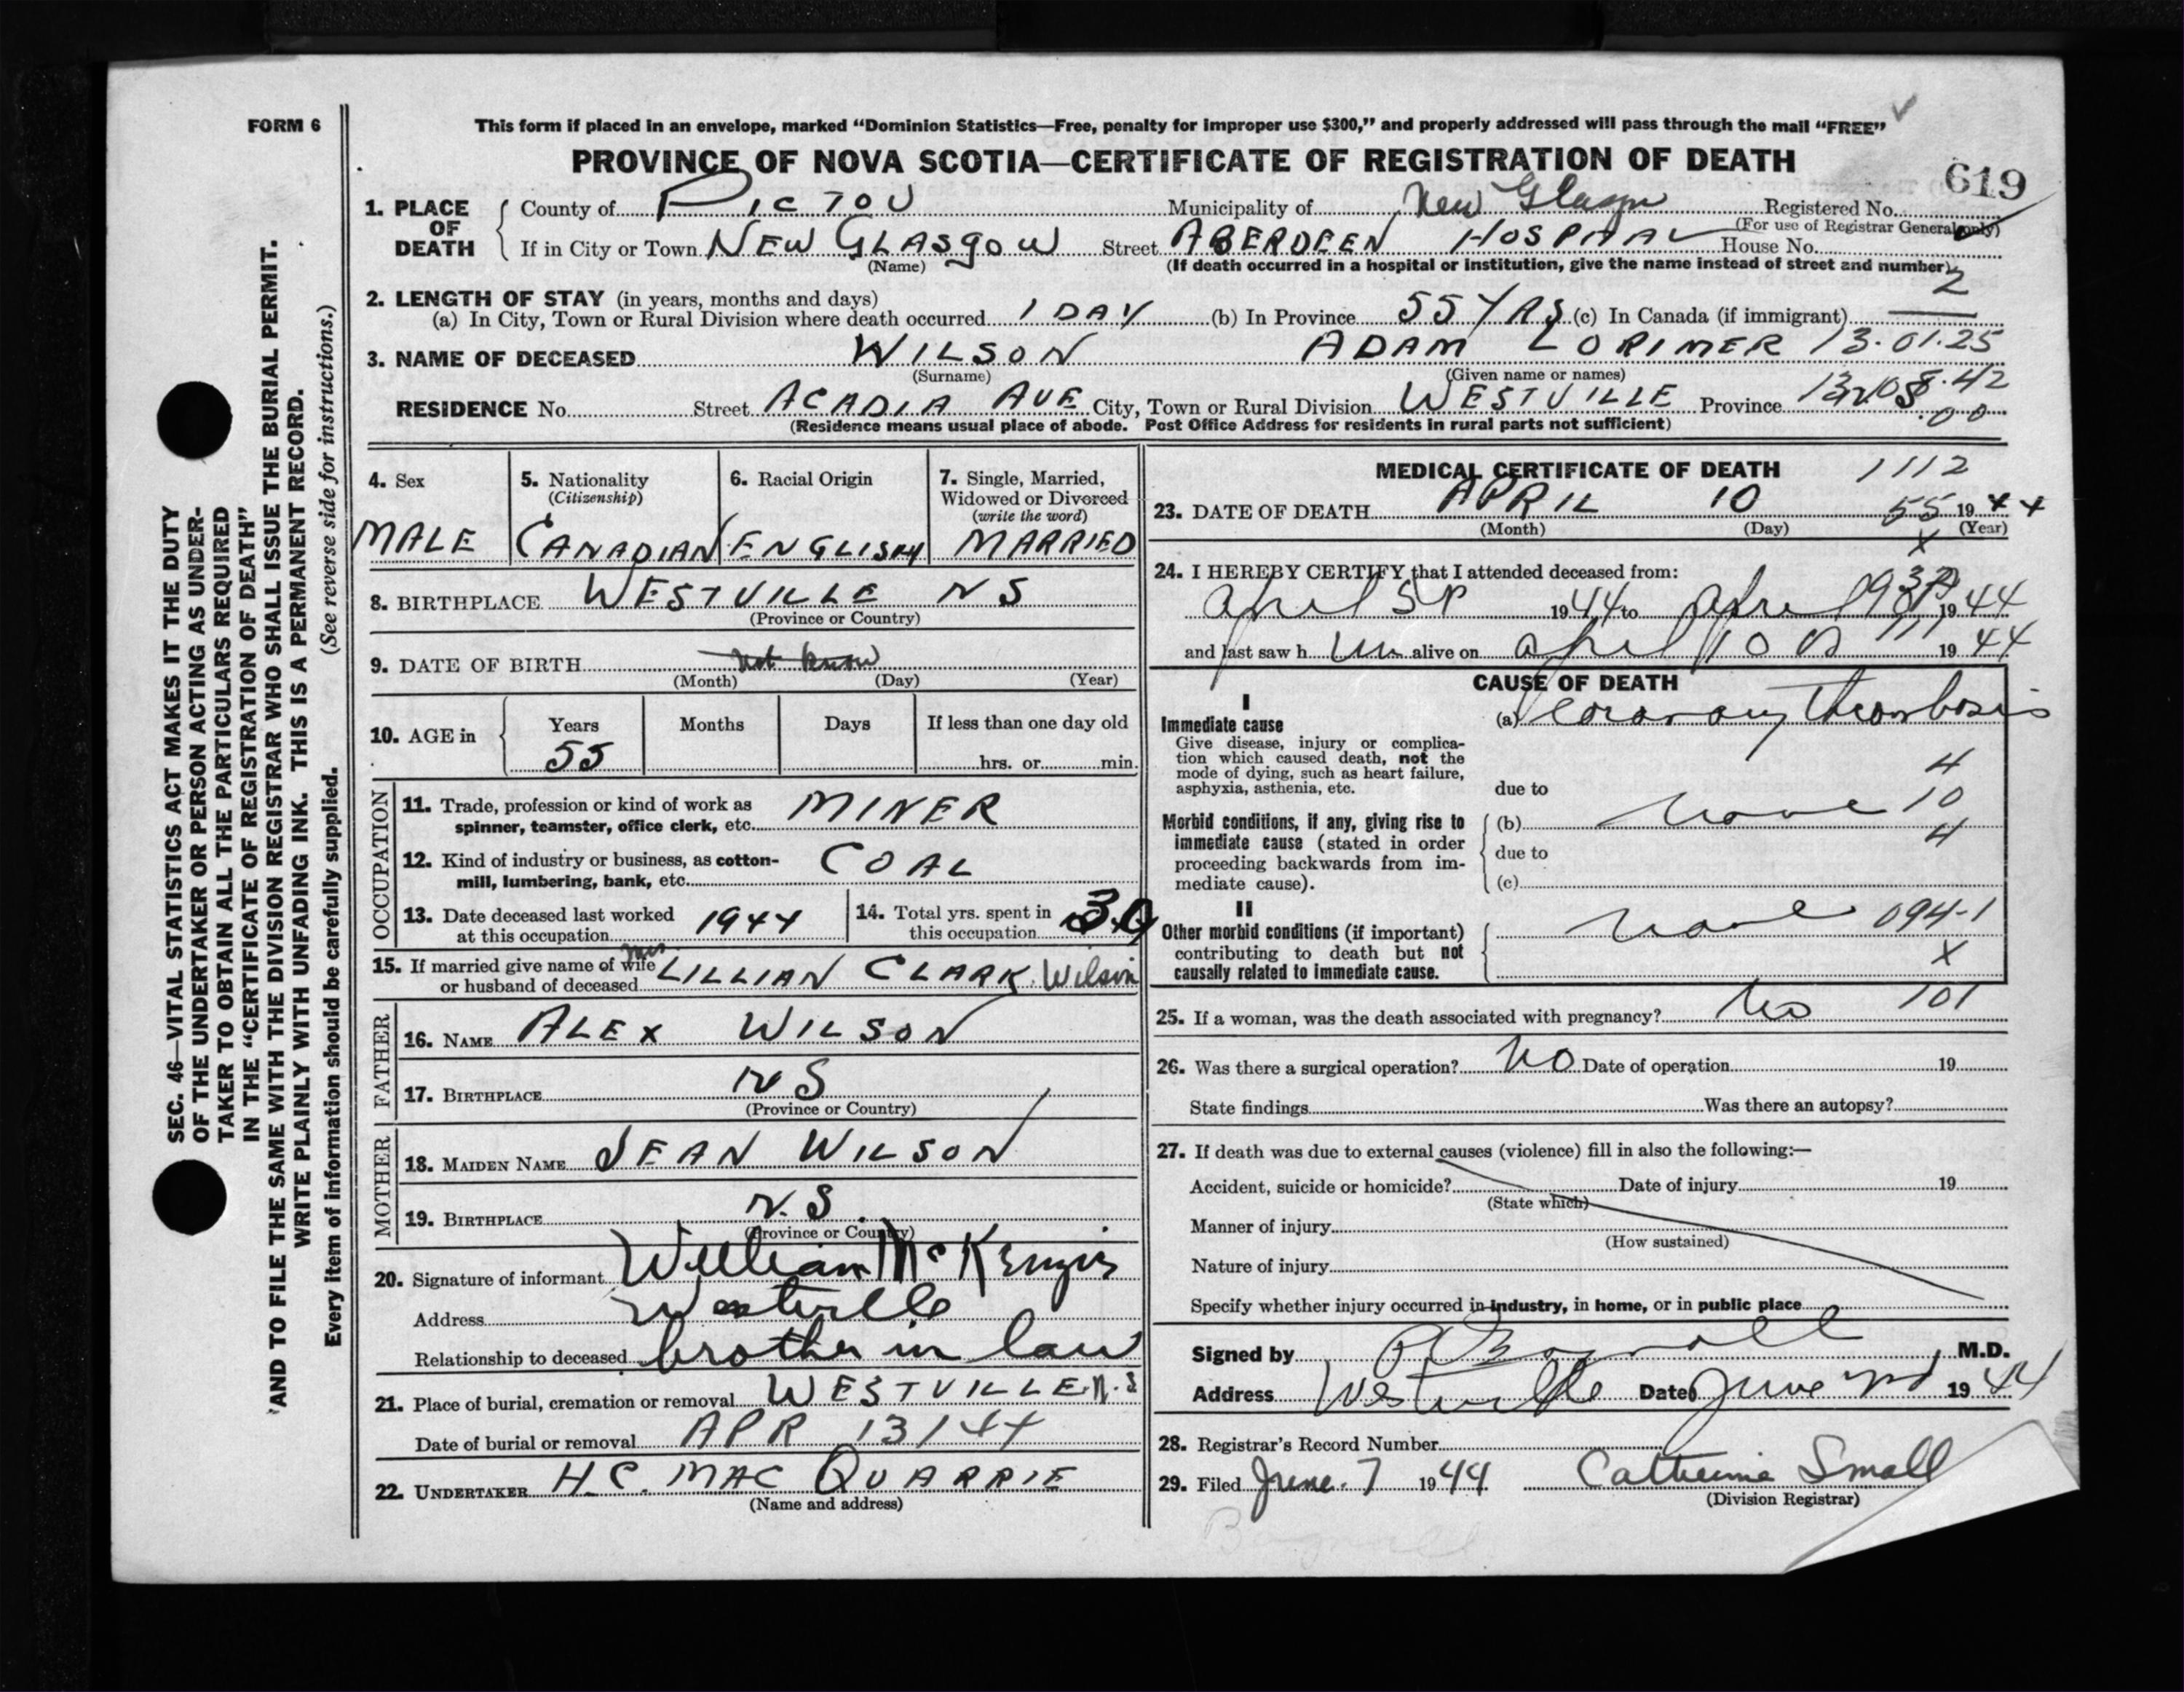 FORM 6
This form if placed in an envelope, marked “Dominion Statistics—Free, penalty for improper use $300,” and properly addressed will pass through the mail “FREE”
PROVINCE OF NOVA SCOTIA—CERTIFICATE OF REGISTRATION OF DEATH
619
1. PLACE OF DEATH
County of PICTOU Municipality of New Glasgow Registered No.
(For use of Registrar General only)
If in City or Town NEW GLASGOW Street ABERDEEN HOSPITAL House No.
(Name) (If death occurred in a hospital or institution, give the name instead of street and number)
2
2. LENGTH OF STAY (in years, months and days)
(a) In City, Town or Rural Division where death occurred 1 DAY (b) In Province 55 YRS (c) In Canada (if immigrant)
3. NAME OF DECEASED WILSON ADAM LORIMER 13.01.25
(Surname) (Given name or names)
RESIDENCE No. Street ACADIA AVE City, Town or Rural Division WESTVILLE Province
(Residence means usual place of abode. Post Office Address for residents in rural parts not sufficient)
4. Sex
MALE
5. Nationality
(Citizenship)
CANADIAN
6. Racial Origin
ENGLISH
7. Single, Married,
Widowed or Divorced
(write the word)
MARRIED
8. BIRTHPLACE WESTVILLE N S
(Province or Country)
9. DATE OF BIRTH not know
(Month) (Day) (Year)
10. AGE in
Years Months Days If less than one day old
55 hrs. or min.
OCCUPATION
11. Trade, profession or kind of work as
spinner, teamster, office clerk, etc. MINER
12. Kind of industry or business, as cotton-
mill, lumbering, bank, etc. COAL
13. Date deceased last worked
at this occupation 1944
14. Total yrs. spent in
this occupation 30
15. If married give name of wife
or husband of deceased Mrs LILLIAN CLARK Wilson
FATHER
16. NAME ALEX WILSON
17. BIRTHPLACE N S
(Province or Country)
MOTHER
18. MAIDEN NAME JEAN WILSON
19. BIRTHPLACE N.S.
(Province or Country)
20. Signature of informant William McKenzie
Address Westville
Relationship to deceased brother in law
21. Place of burial, cremation or removal WESTVILLE N.S
Date of burial or removal APR 13/44
22. UNDERTAKER H.C. MAC QUARRIE
(Name and address)
MEDICAL CERTIFICATE OF DEATH 1112
23. DATE OF DEATH APRIL 10 55 1944
(Month) (Day) (Year)
x
24. I HEREBY CERTIFY that I attended deceased from:
April 1944 to April 1944
and last saw h im alive on April 10 1944
CAUSE OF DEATH
I
Immediate cause
Give disease, injury or complica-
tion which caused death, not the
mode of dying, such as heart failure,
asphyxia, asthenia, etc.
(a) Coronary Thrombosis
4
due to
10
Morbid conditions, if any, giving rise to
immediate cause (stated in order
proceeding backwards from im-
mediate cause).
(b) none
4
due to
(c)
II
Other morbid conditions (if important)
contributing to death but not
causally related to immediate cause.
none 094-1
x
101
25. If a woman, was the death associated with pregnancy? No
26. Was there a surgical operation? NO Date of operation 19
State findings Was there an autopsy?
27. If death was due to external causes (violence) fill in also the following:—
Accident, suicide or homicide? Date of injury 19
(State which)
Manner of injury
(How sustained)
Nature of injury
Specify whether injury occurred in industry, in home, or in public place
Signed by Bagnall, M.D.
Address Westville Date June 2nd 1944
28. Registrar's Record Number
29. Filed June 7 1944 Catherine Small
(Division Registrar)
Bagnall
SEC. 46—VITAL STATISTICS ACT MAKES IT THE DUTY
OF THE UNDERTAKER OR PERSON ACTING AS UNDER-
TAKER TO OBTAIN ALL THE PARTICULARS REQUIRED
IN THE “CERTIFICATE OF REGISTRATION OF DEATH”
AND TO FILE THE SAME WITH THE DIVISION REGISTRAR WHO SHALL ISSUE THE BURIAL PERMIT.
WRITE PLAINLY WITH UNFADING INK. THIS IS A PERMANENT RECORD.
Every item of information should be carefully supplied. (See reverse side for instructions.)